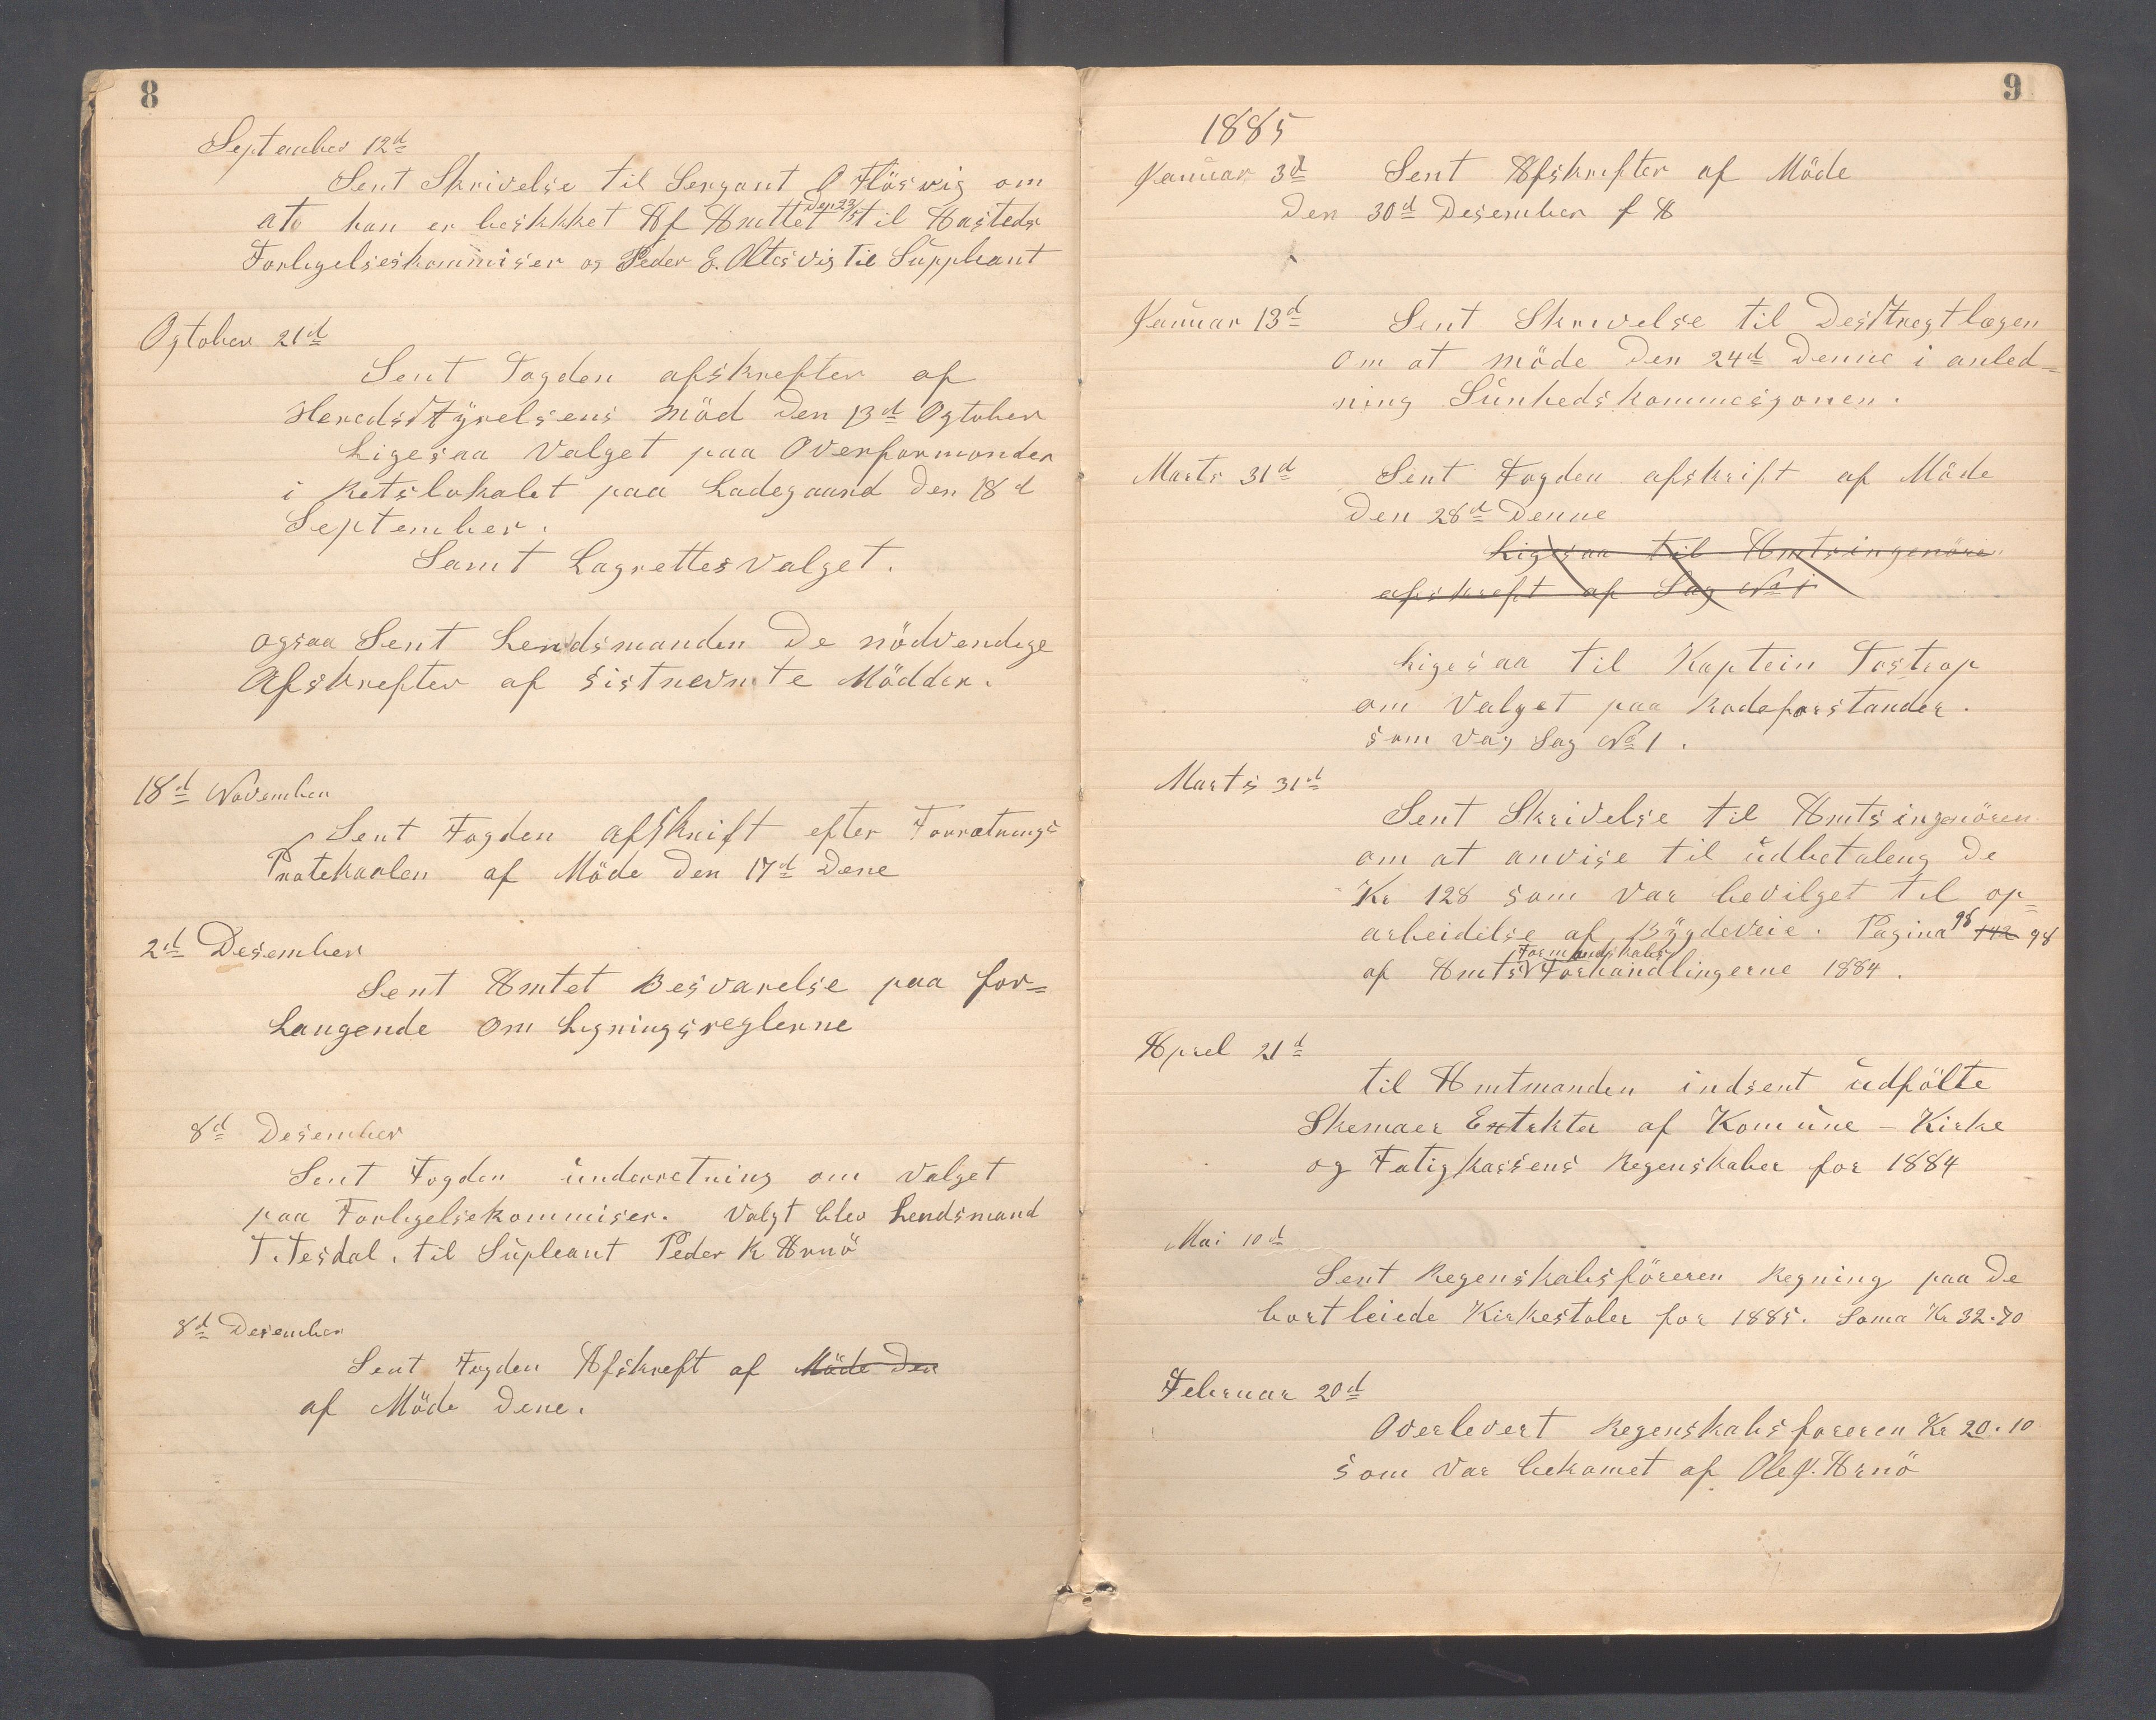 8
September 12d
Sent Skrivelse til Sergant O Flösvig om
at han er beskkket Af Amttet den 23/5 til Hasteds
Forligelseskommiser og Peder E. Oltesvig til Suppleant
Ogtober 21d
Sent Fogden afskrefter af
Heredsstÿrelsens Möd den 13d Ogtober
Ligesaa Valget paa Overformonder
i Retslokalet paa Ladegaard den 18d
September.
Samt Lagrettesvalget.
ogsaa Sent Lendsmanden De nödvendige
Afskrefter af sistnevnte Mödder.
18d November
Sent Fogden afskrift efter Forretnings
Protekaalen af Möde Den 17d Dene
2d Desember
Sent Amtet Besvarelse paa for=
Langende om Ligningsreglerne
8d Desember
Sent Fogden underretning om Valget
paa Forligelsekommiser. Valgt blev Lendsmand
T. Tesdal. til Supleant Peder K Arnö
8d Desember
Sent Fogden Afskreft af Möde Den
af Möde Dene.
9
1885
Januar 3d Sent Afskrefter af Möde
Den 30d Desember f A
Januar 13d Sent Skrivelse til Desstregtlægen
om at möde Den 24d Denne i anled=
ning Sunhedskommesjonen.
Marts 31d Sent Fogden afskrift af Möde
Den 28d Denne
Ligesaa til Amtsingenören
afskreft af Sag No 1
Ligesaa til Kaptein Tostrop
om Valget paa Rodeforstander.
som var Sag No 1.
Marts 31d
Sent Skrivelse til Amtsingenören
om at anvise til udbetaleng De
Kr 128 som var bevilget til op=
arbeidelse af Bÿgdeveie. Pagina 98 142 98
af Amts Formandskabs Forhandlingerne 1884.
Aprel 21d
til Amtmanden indsent udfölte
Skemaer Extrkter af Komune - Kirke
og Fatigkassens Regenskaber for 1884
Mai 10d
Sent Regenskabsföreren Regning paa De
bortleiede Kirkestoler for 1885. Soma Kr 32.70
Februar 20d
Overlevert Regenskabsforeren Kr 20.10
som var bekomet af Ole J. Arnö